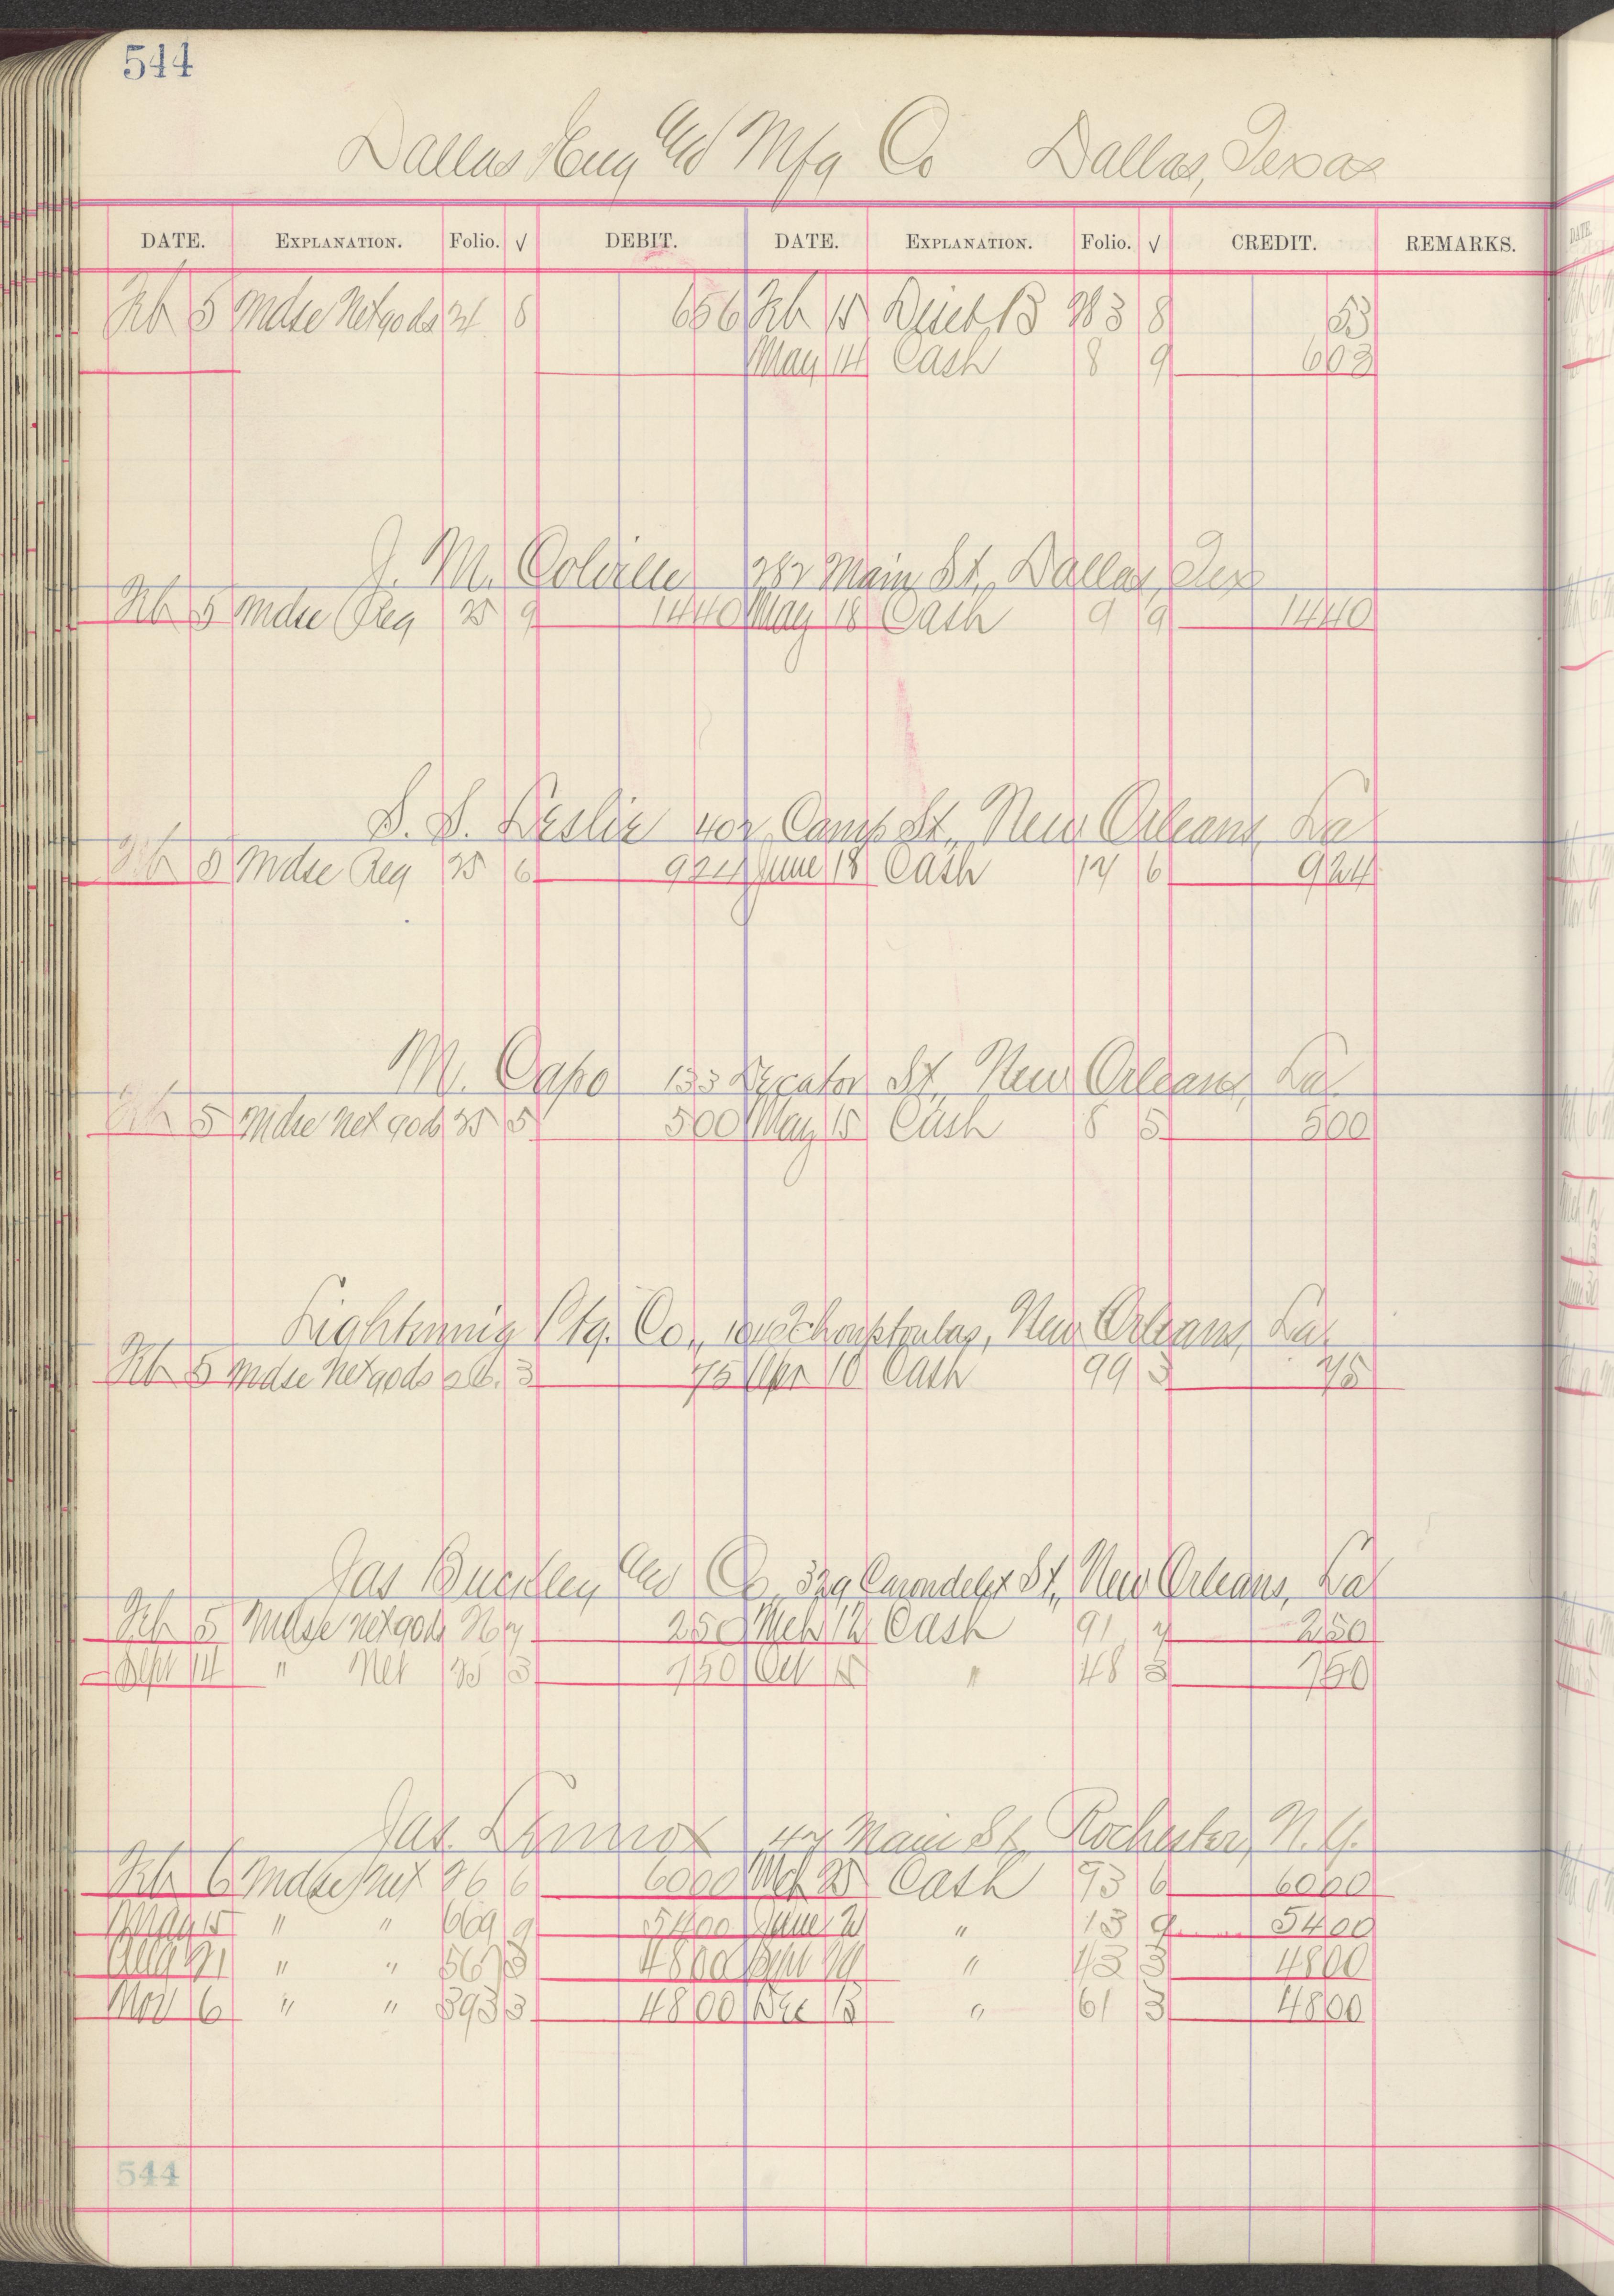 544
Dallas Eng and Mfg Co Dallas, Texas
DATE. EXPLANATION. Folio. √ DEBIT. DATE. EXPLANATION. Folio. √ CREDIT. REMARKS.
Feb 5 Mdse Net gods 24 8 656 Feb 15 B 283 8 53
May 14 Cash 8 9 603
J. M. Colville 282 Main St., Dallas, Tex
Feb 5 Mdse Reg 25 9 1440 May 18 Cash 9 9 1440
S. S. Leslie 402 Camp St., New Orleans, La
Feb 5 Mdse Reg 25 6 924 June 18 Cash 14 6 924
M. Capo 133 Decator St., New Orleans, La.
Feb 5 Mdse Net gods 25 5 500 May 15 Cash 8 5 500
Lightning Ptg. Co., Tchouptoulas, New Orleans, La.
Feb 5 Mdse Net gods 3 75 Apr 10 Cash 99 3 75
Jas Buckley and Co, 329 Carondelet St., New Orleans, La
Feb 5 Mdse Net gods 26 7 250 Mch 12 Cash 91 7 250
Sept 14 " Net 25 3 750 Oct 15 " 48 3 750
Jas. Lennox 47 Main St., Rochester, N. Y.
Feb 6 Mdse Net 26 6 6000 Mch 25 Cash 93 6 6000
May 15 " " 669 9 5400 June 21 " 13 9 5400
Aug 21 " " 567 3 4800 Sept 29 " 43 3 4800
Nov 6 " " 393 3 4800 Dec 13 " 61 3 4800
544